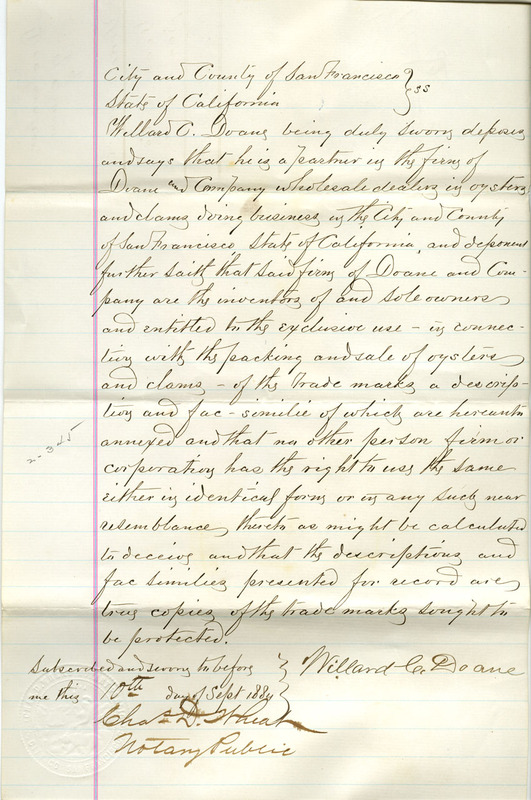 City and County of San Francisco } ss
State of California
Willard C. Doane being duly sworn deposes
and says that he is a partner in the firm of
Doane and Company wholesale dealers in oysters
and clams doing business in the City and County
of San Francisco State of California, and deponent
further saith that said firm of Doane and Com-
pany are the inventors of and sole owners
and entitled to the exclusive use - in connec-
tion with the packing and sale of oysters
and clams - of the trade marks a descrip-
tion and fac-similie of which are hereunto
annexed and that no other person firm or
corporation has the right to use the same
either in identical form or in any such near
resemblance thereto as might be calculated
to deceive and that the descriptions and
fac similies presented for record are
true copies of the trade marks sought to
be protected.
2-345
Subscribed and sworn to before } Willard C. Doane
me this 10th day of Sept 1884
Chas. D. Wheat
Notary Public